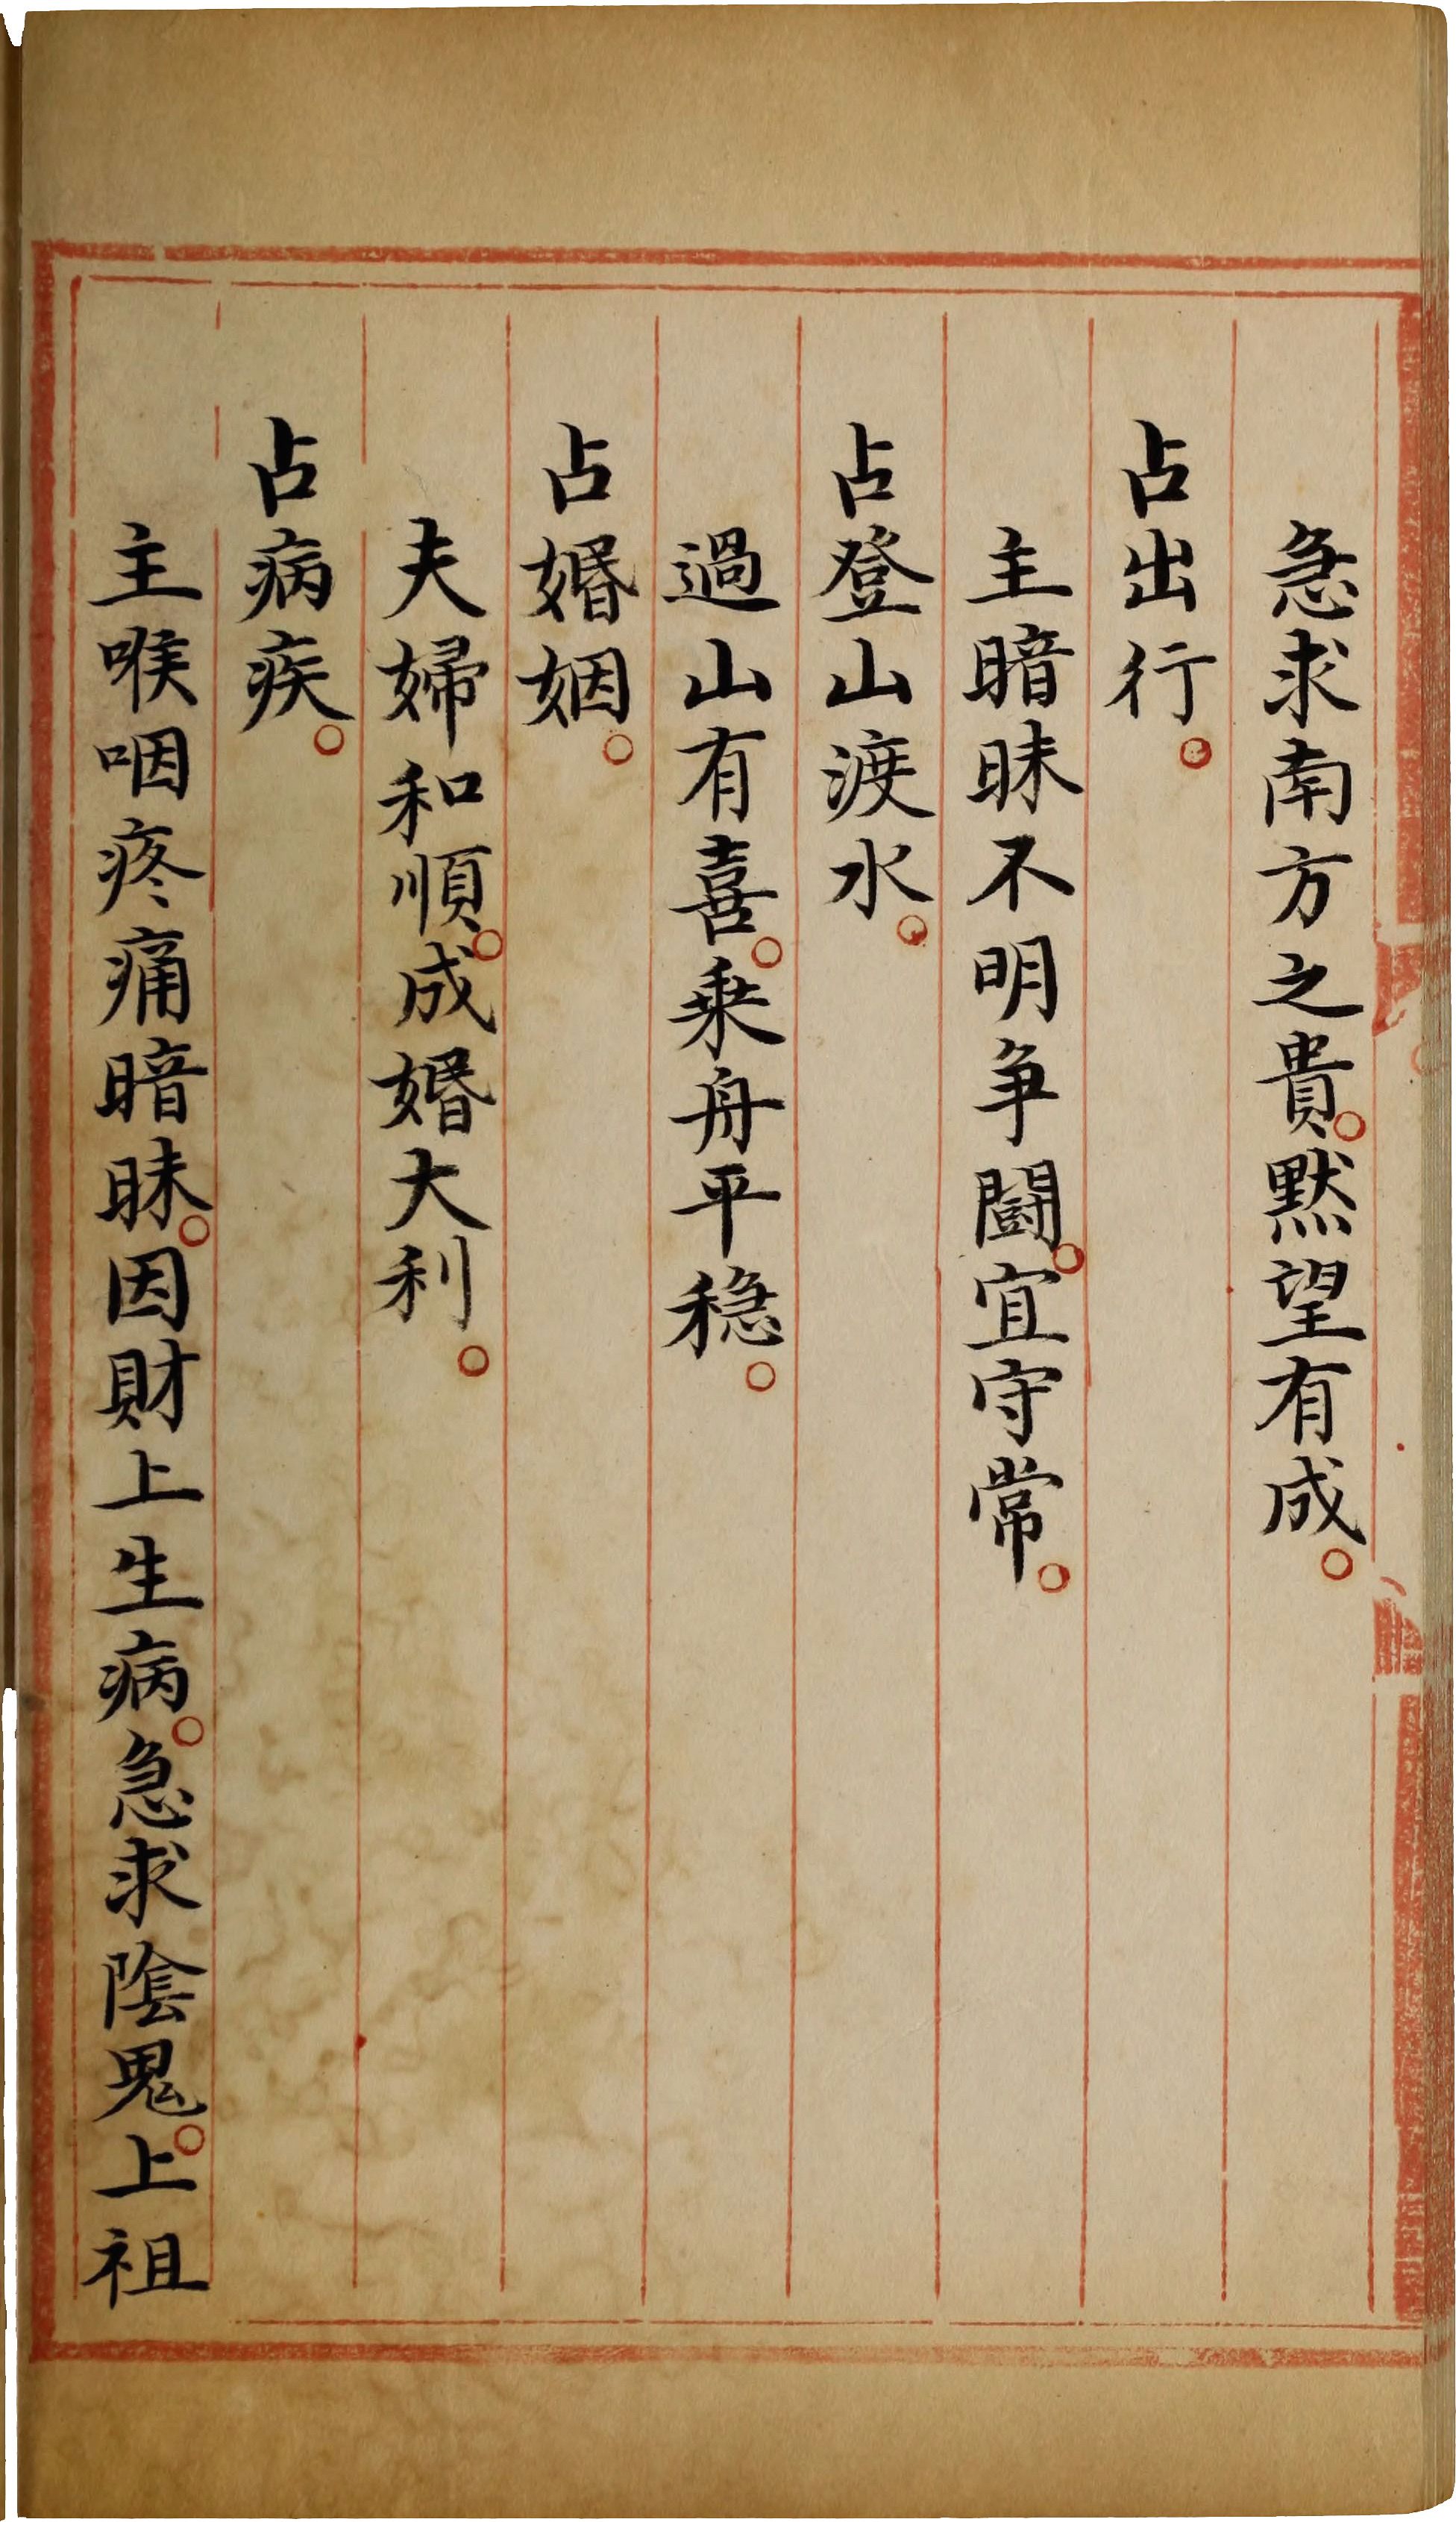 急求南方之貴。黙望有成。
占出行。
主暗昧不明争鬪。宜守常。
占登山渡水。
過山有喜。乗舟平穏。
占婚姻。
夫婦和順。成婚大利。
占病疾。
主喉咽疼痛暗昧。因財上生病。急求陰鬼。上祖